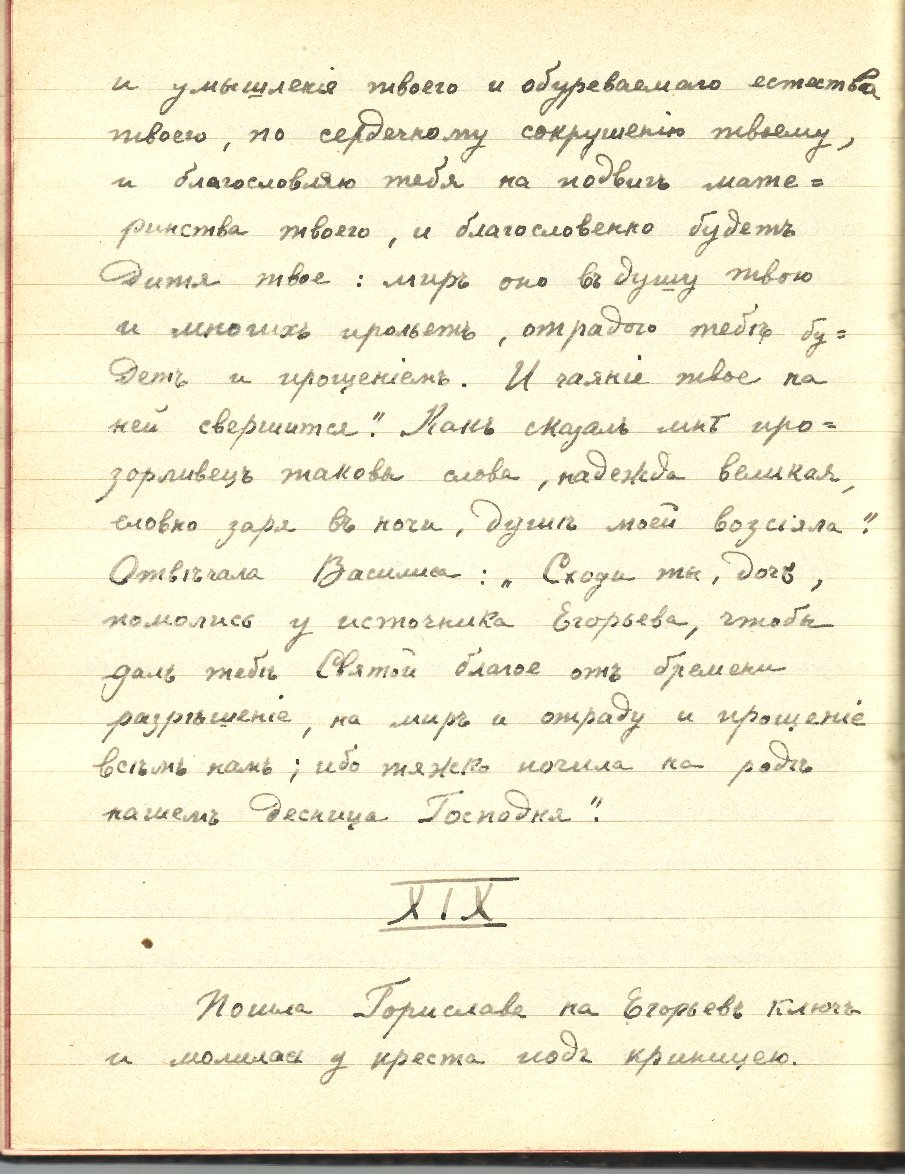 и умышленія твоего и обуреваемаго естества
твоего, по сердечному сокрушенію твоему,
и благословляю тебя на подвигъ мате=
ринства твоего, и благословенно будетъ
дитя твое: миръ оно въ душу твою
и многихъ прольетъ, отрадою тебѣ бу=
детъ и прощеніемъ. И чаяніе твое на
ней свершится". Какъ сказалъ мнѣ про=
зорливецъ таковы слова, надежда великая,
словно заря въ ночи, душѣ моей возсіяла".
Отвѣчала Василиса: „Сходи ты, дочь,
помолись у источника Егорьева, чтобы
далъ тебѣ Святой благое отъ бремени
разрѣшеніе, на миръ и отраду и прощеніе
всѣмъ намъ; ибо тяжко почила на родѣ
нашемъ десница Господня".
XIX
Пошла Горислава на Егорьевъ ключъ
и молилась у креста подъ криницею.